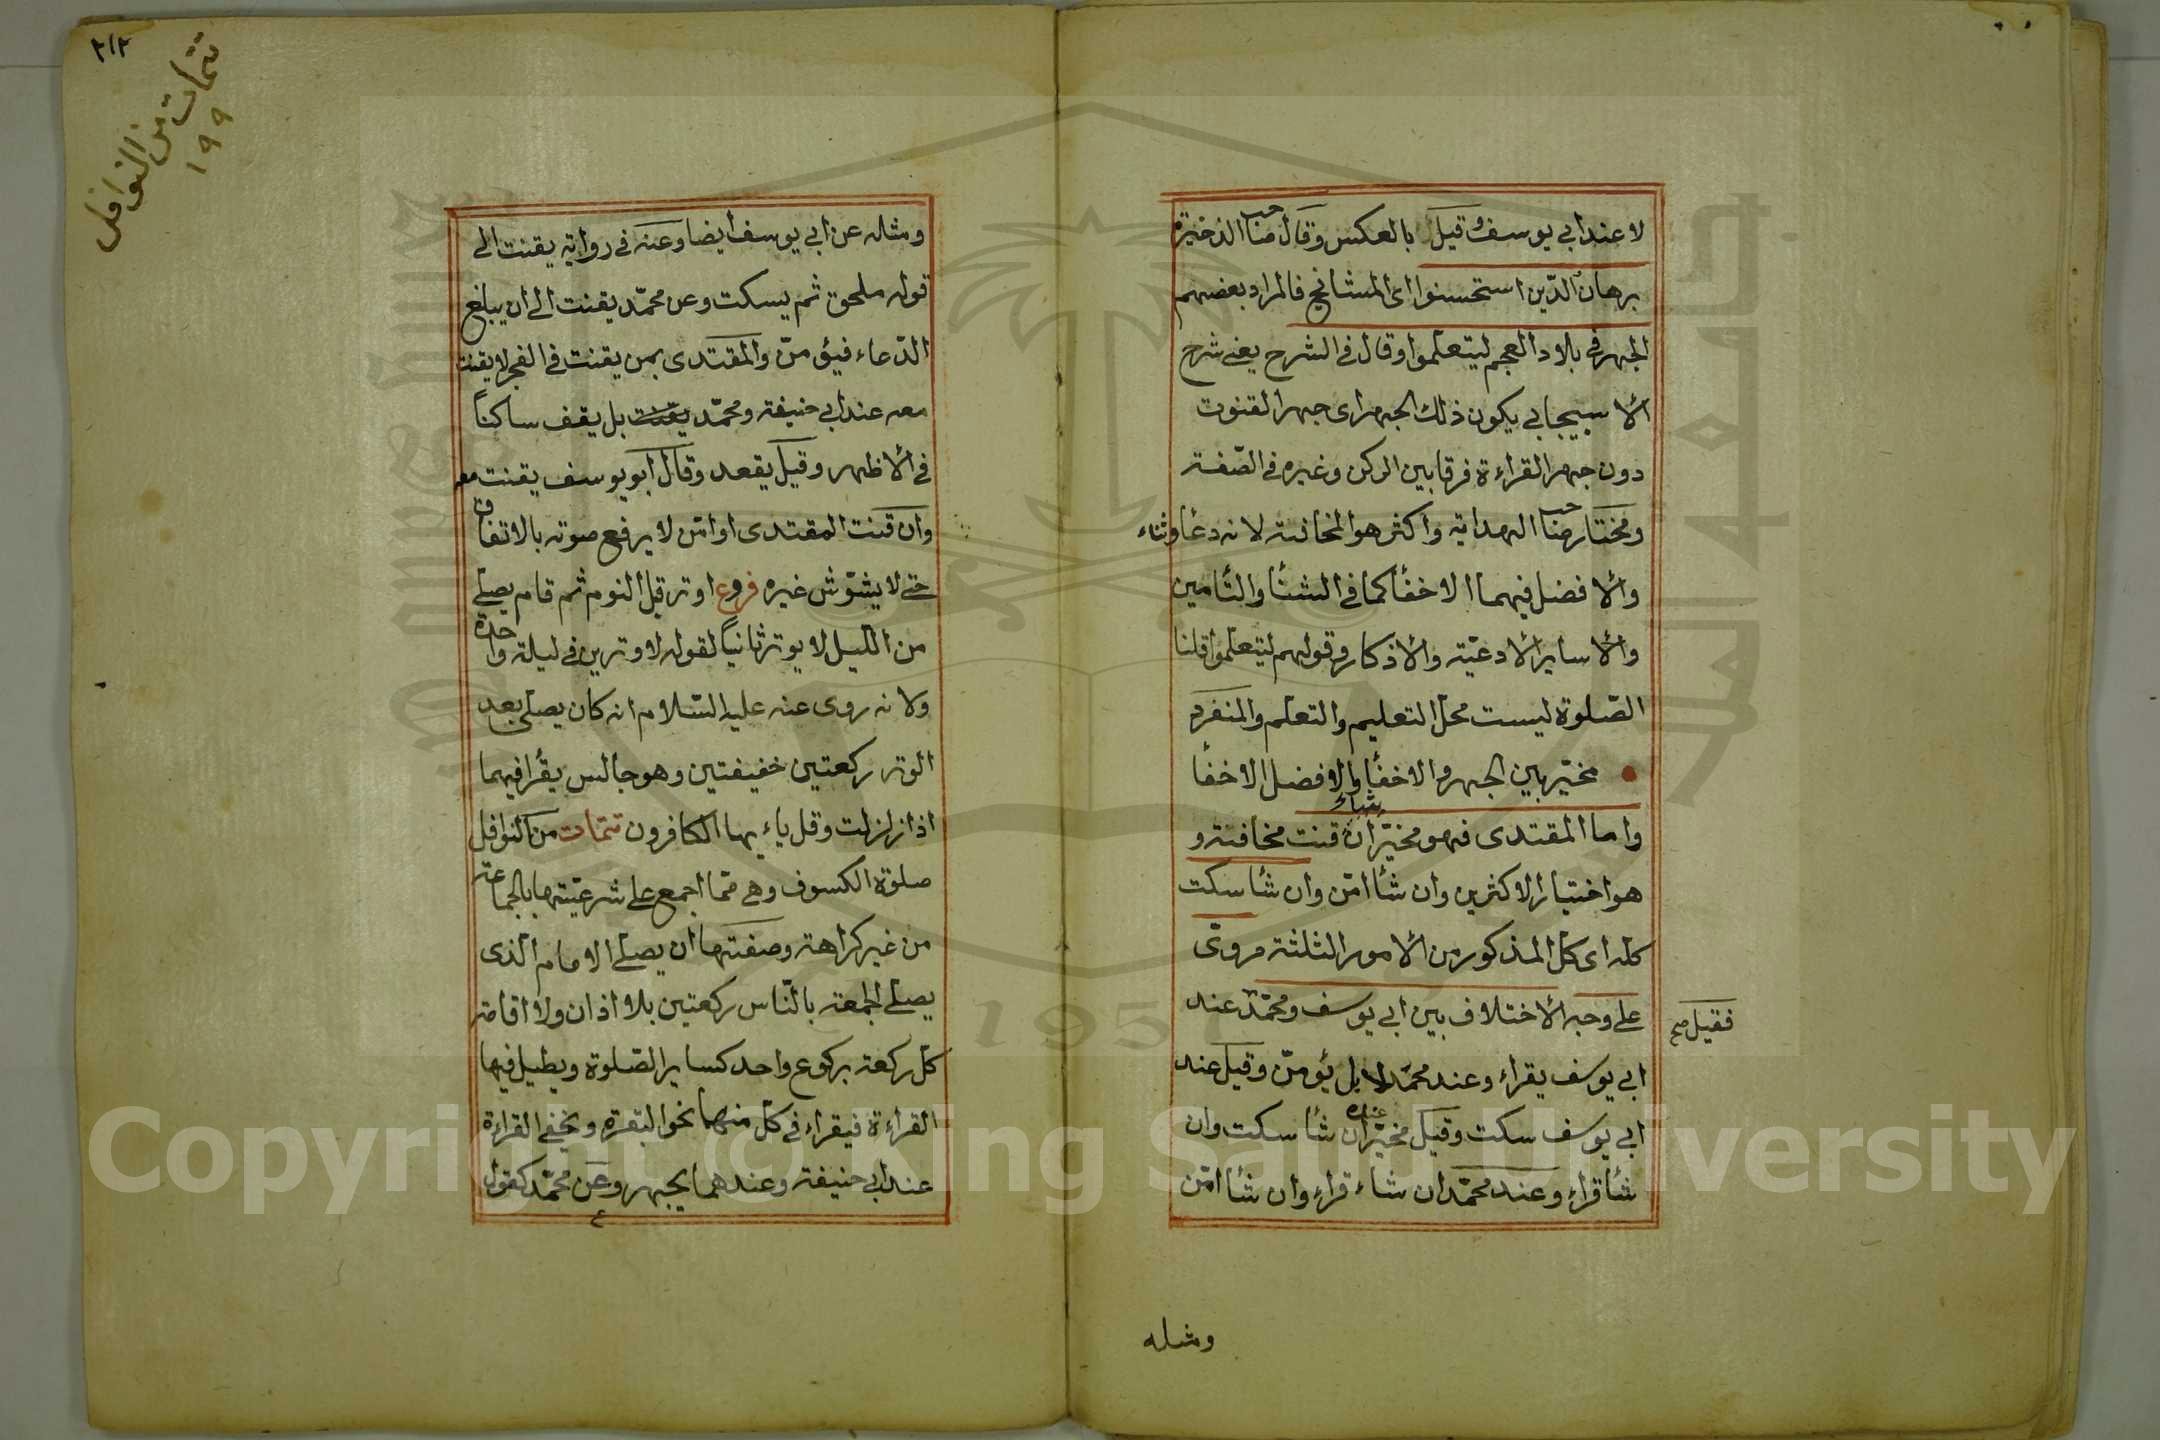 لا عند ابي يوسف وقيل بالعكس وقال صاحب الذخيرة
برهان الدّين استحسنوا اى المشايخ فالمراد بعضهم
الجهر في بلاد العجم ليتعلّموا وقال في الشرح يعني شرح
الاسبيجابي يكون ذلك الجهر اى جهر القنوت
دون جهر القراءة فرقا بين الركن وغيره في الصّفة
ومختار صاحب الهداية واكثر هو المخافتة لانه دعا وثناء
والافضل فيهما الاخفأ كما في الشنأ والتأمين
والاسايرالادعيّة والاذكار وقولهم ليتعلّموا قلنا
الصّلوة ليست محلّ التعليم والتعلّم والمنفرد
مخيّر بين الجهر والاخفأ والافضل الاخفأ
واما المقتدى فهو مخيّر ان شاء قنت مخافتة و
هو اختيار الاكثرين وان شأ امّن وان شأ سكت
كله اى كلّ المذكور من الامور الثلثة مروىّ
على وجه الاختلاف بين ابي يوسف ومحمّد عند
فقيل صح
ابي يوسف يقراء وعند محمّد لا بل يؤمّن وقيل عند
ابي يوسف سكت وقيل عنده مخيّر ان شأ سكت وان
شأ قراء وعند محمّد ان شاء قراء وان شأ امّن
ومثله
٢١٢
تتمات من النوافل
١٩٩
ومثله عن ابي يوسف ايضا وعنه في رواية يقنت الى
قوله ملحق ثم يسكت وعن محمّد يقنت الى ان يبلغ
الدّعاء فيؤمنّ والمقتدى بمن يقنت في الفجر لا يقنت
معه عند ابي حنيفة ومحمّد يقنت بل يقف ساكتاً
في الاظهر وقيل يقعد وقال ابو يوسف يقنت معه
وان قنت المقتدى او امّن لا يرفع صوته بالاتفاق
حتى لا يشوّش غيره فروع اوتر قبل النوم ثم قام يصلّي
من اللّيل لا يوتر ثانياً لقوله لا وترين في ليلة واحدة
ولانه روى عنه عليه السّلام انه كان يصلّي بعد
الوتر ركعتين خفيفتين وهو جالس يقرأ فيهما
اذا زلزلت وقل ياءيها الكافرون تتمات من النوافل
صلوة الكسوف وهي ممّا اجمع على شرعيّتها بالجماعة
من غير كراهة وصفتها ان يصلّي الامام الّذى
يصلّي الجمعة بالنّاس ركعتين بلا اذان ولا اقامة
كلّ ركعة بركوع واحد كساير الصّلوة ويطيل فيها
القراءة فيقراء في كلّ منهما نحو البقرة ويخفي القراءة
عند ابي حنيفة وعندهما يجهر وعن محمّد كقول
Copyright © King Saud University
1957